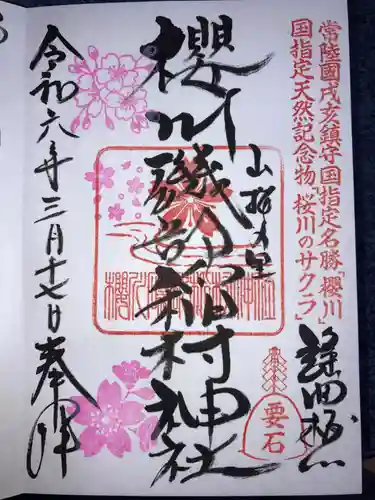 常陸國戌亥鎮守国指定名勝「櫻川」
国指定天然記念物「桜川のサクラ」
謡曲桜川
要石
山桜の里
櫻川磯部稲村神社
令和六年三月十七日奉拝